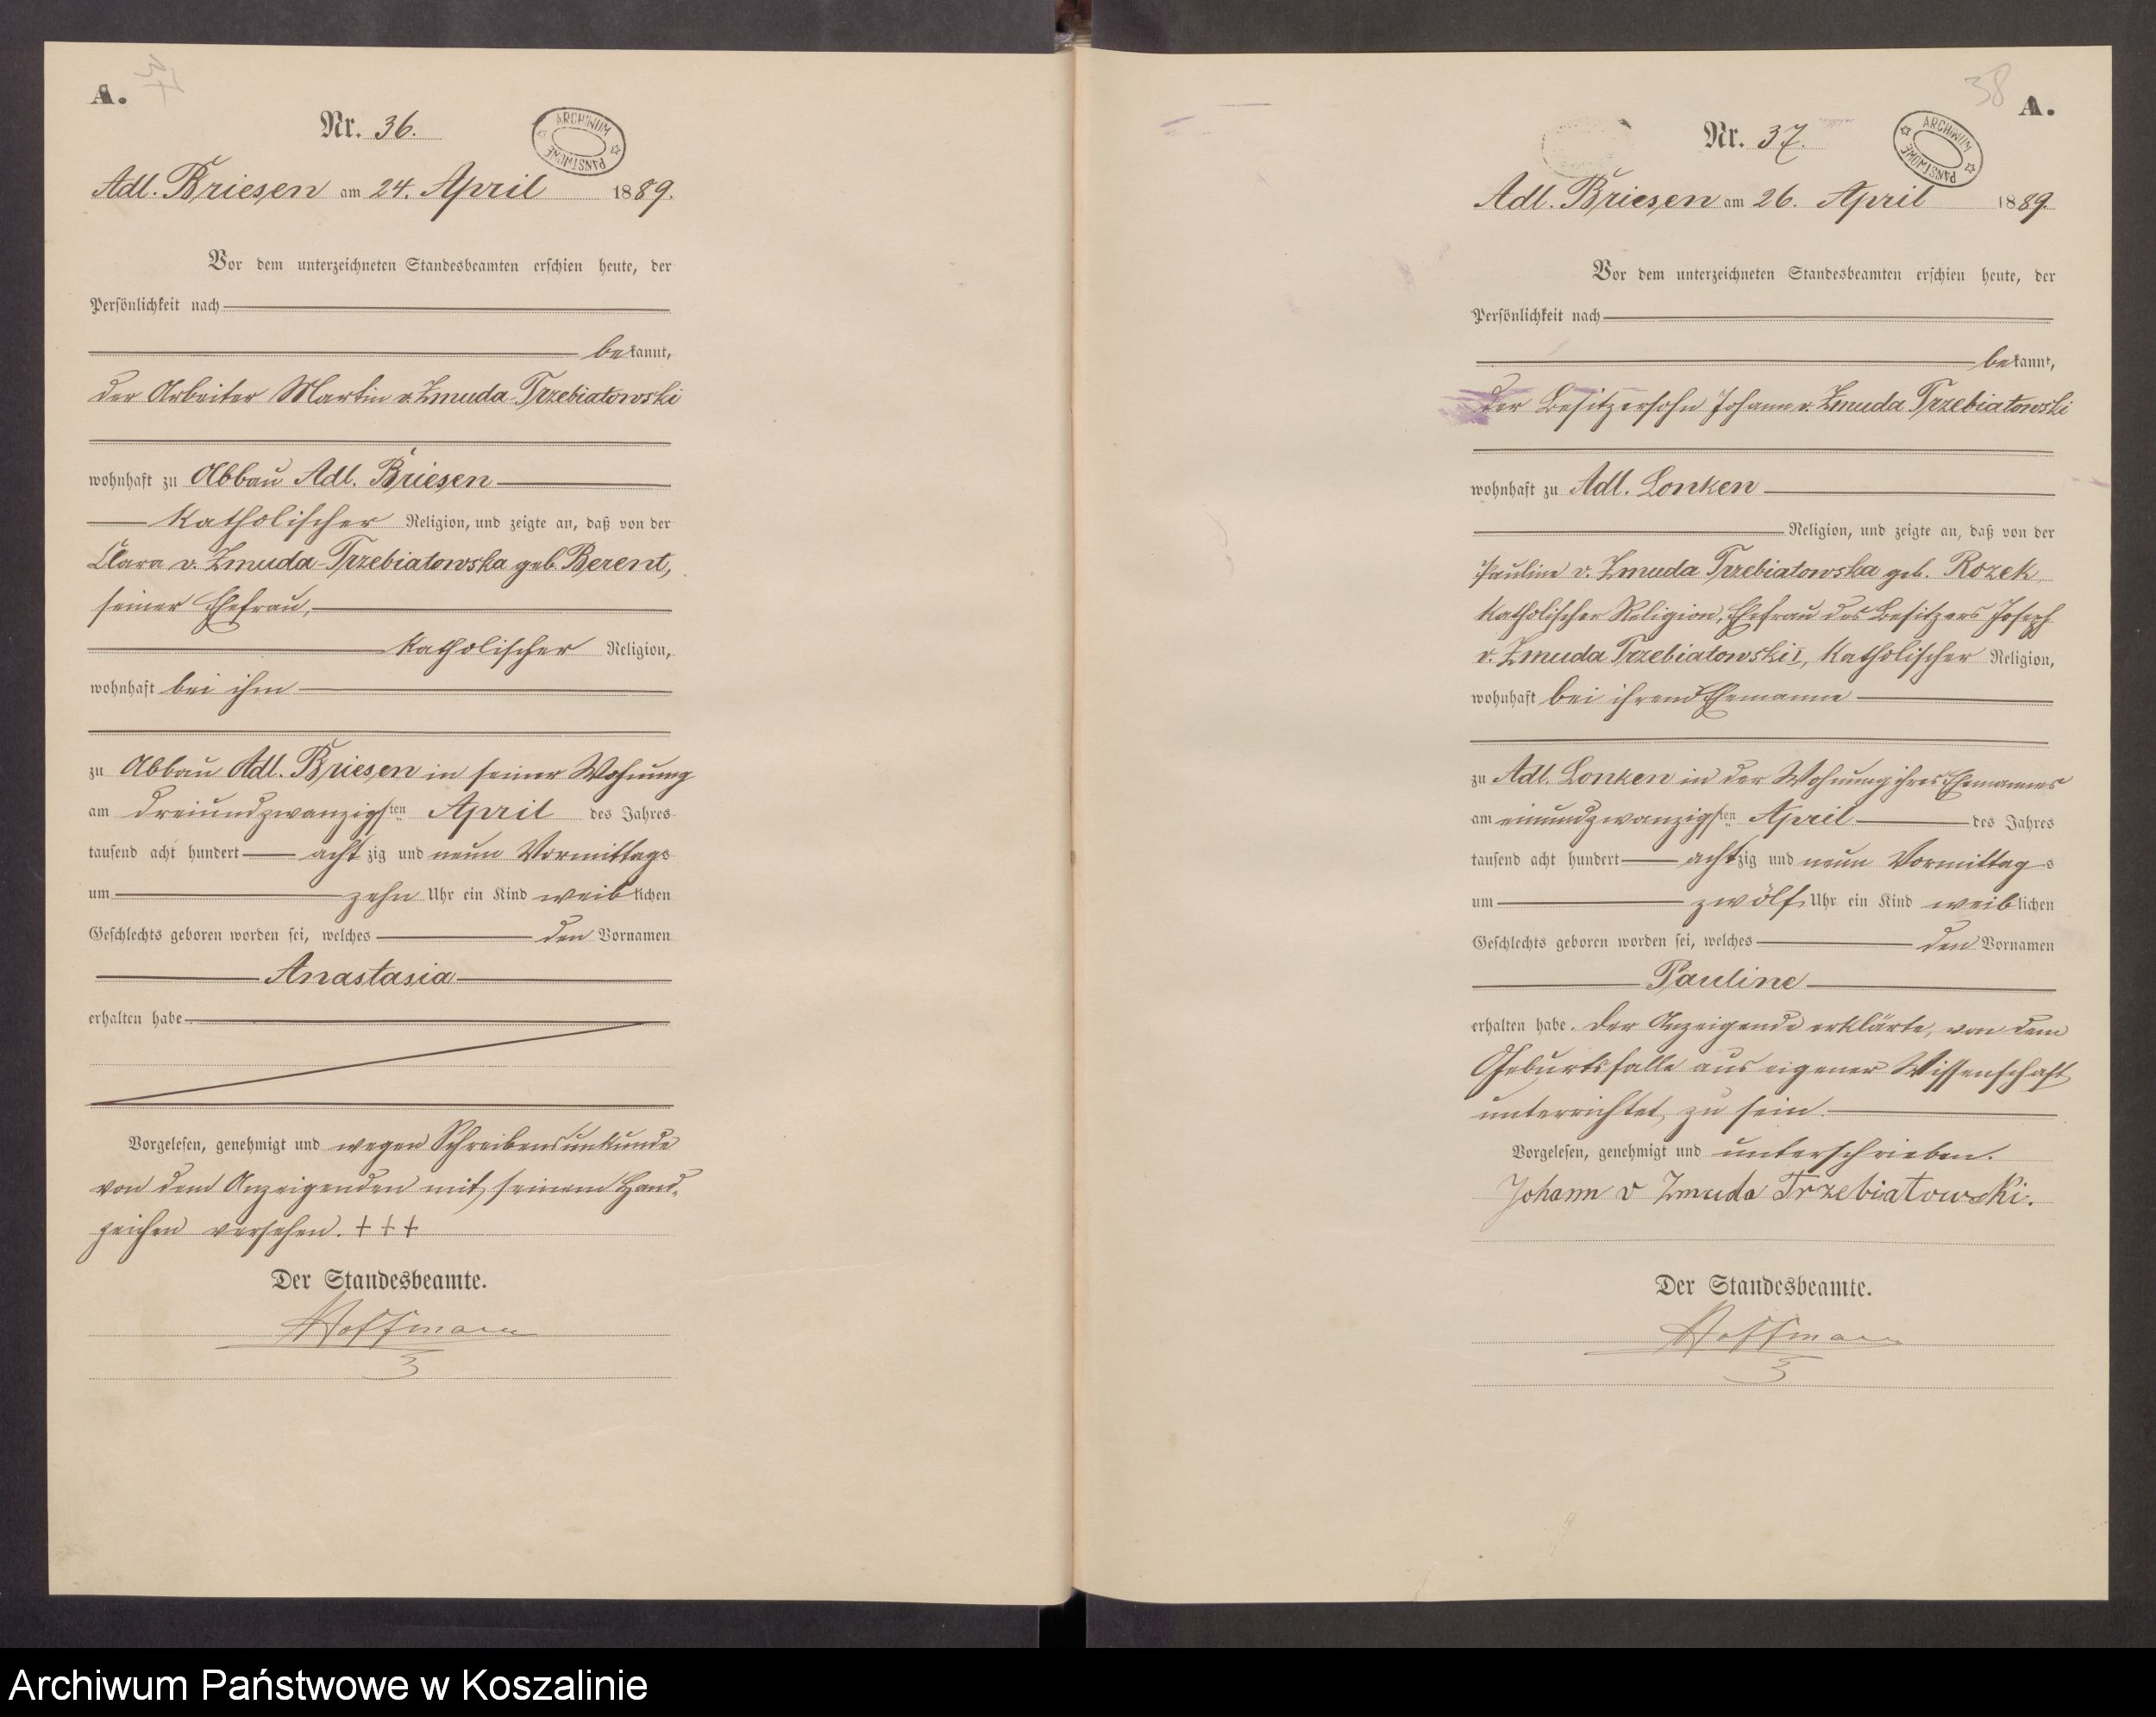 A.
Nr. 36.
ARCHIWUM PAŃSTWOWE
Adl. Briesen am 24. April 1889.
Vor dem unterzeichneten Standesbeamten erschien heute, der
Persönlichkeit nach
bekannt,
der Arbeiter Martin v. Zmuda-Trzebiatowski
wohnhaft zu Abbau Adl. Briesen
katholischer Religion, und zeigte an, daß von der
Clara v. Zmuda-Trzebiatowska geb. Berent,
seiner Ehefrau,
katholischer Religion,
wohnhaft bei ihm
zu Abbau Adl. Briesen in seiner Wohnung
am dreiundzwanzigsten April des Jahres
tausend acht hundert achtzig und neun Vormittags
um zehn Uhr ein Kind weiblichen
Geschlechts geboren worden sei, welches den Vornamen
Anastasia
erhalten habe
Vorgelesen, genehmigt und wegen Schreibensunkunde
von dem Anzeigenden mit seinem Hand-
zeichen versehen. +++
Der Standesbeamte.
Hoffmann
38
A.
Nr. 37.
ARCHIWUM PAŃSTWOWE
Adl. Briesen am 26. April 1889.
Vor dem unterzeichneten Standesbeamten erschien heute, der
Persönlichkeit nach
bekannt,
der Besitzersohn Johann v. Zmuda Trzebiatowski
wohnhaft zu Adl. Lonken
Religion, und zeigte an, daß von der
Pauline v. Zmuda Trzebiatowska geb. Rozek
katholischer Religion, Ehefrau des Besitzers Joseph
v. Zmuda Trzebiatowski I, katholischer Religion,
wohnhaft bei ihrem Ehemanne
zu Adl. Lonken in der Wohnung ihres Ehemannes
am einundzwanzigsten April des Jahres
tausend acht hundert achtzig und neun Vormittags
um zwölf Uhr ein Kind weiblichen
Geschlechts geboren worden sei, welches den Vornamen
Pauline
erhalten habe. Der Anzeigende erklärte, von dem
Geburtsfalle aus eigener Wissenschaft
unterrichtet zu sein.
Vorgelesen, genehmigt und unterschrieben.
Johann v Zmuda Trzebiatowski.
Der Standesbeamte.
Hoffmann
Archiwum Państwowe w Koszalinie